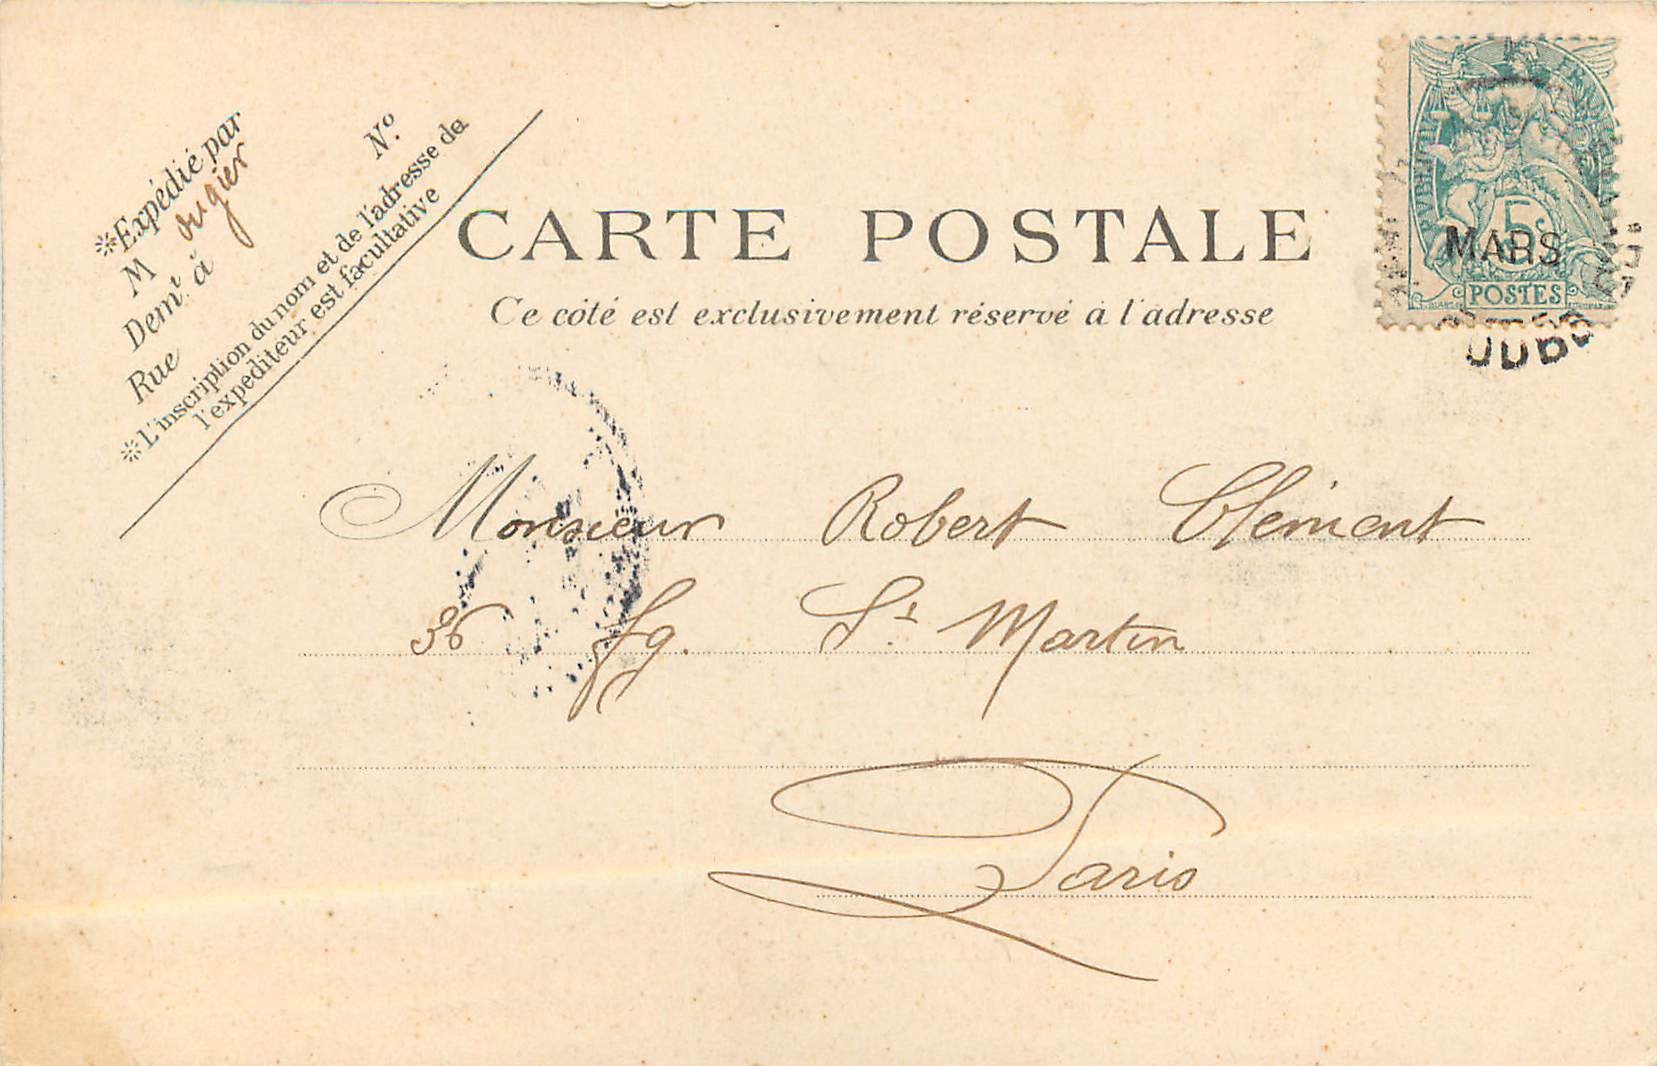 ※Expédié par
M Augier
Demt à
Rue
N°.
※L'inscription du nom et de l'adresse de
l'expéditeur est facultative
CARTE POSTALE
Ce côté est exclusivement réservé à l'adresse
5c
MARS
POSTES
Monsieur Robert Clément
36 fg. St. Martin
Paris